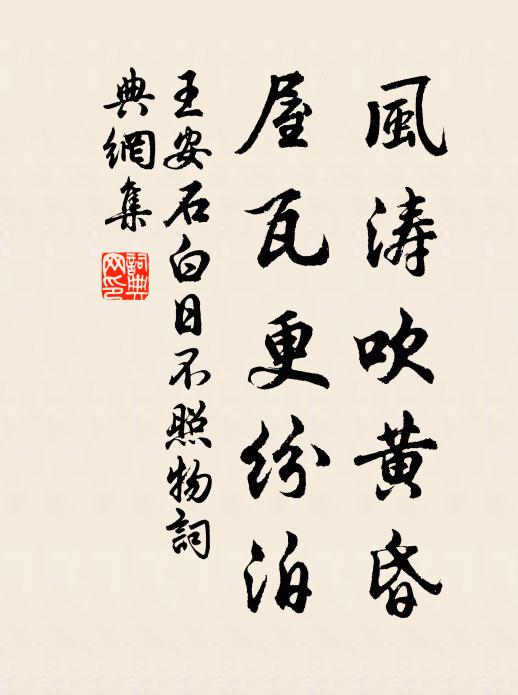 風濤吹黃昏
屋瓦更紛泊
王安石白日不照物詞
典網集
詞典網印